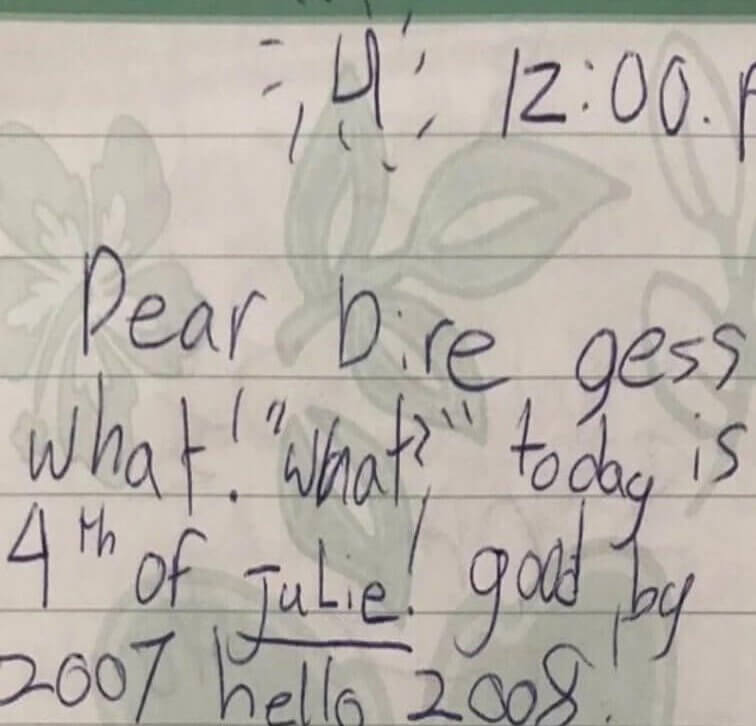 4 12:00.
Dear Dire gess
what! "what?" today is
4th of julie! good by
2007 hello 2008!